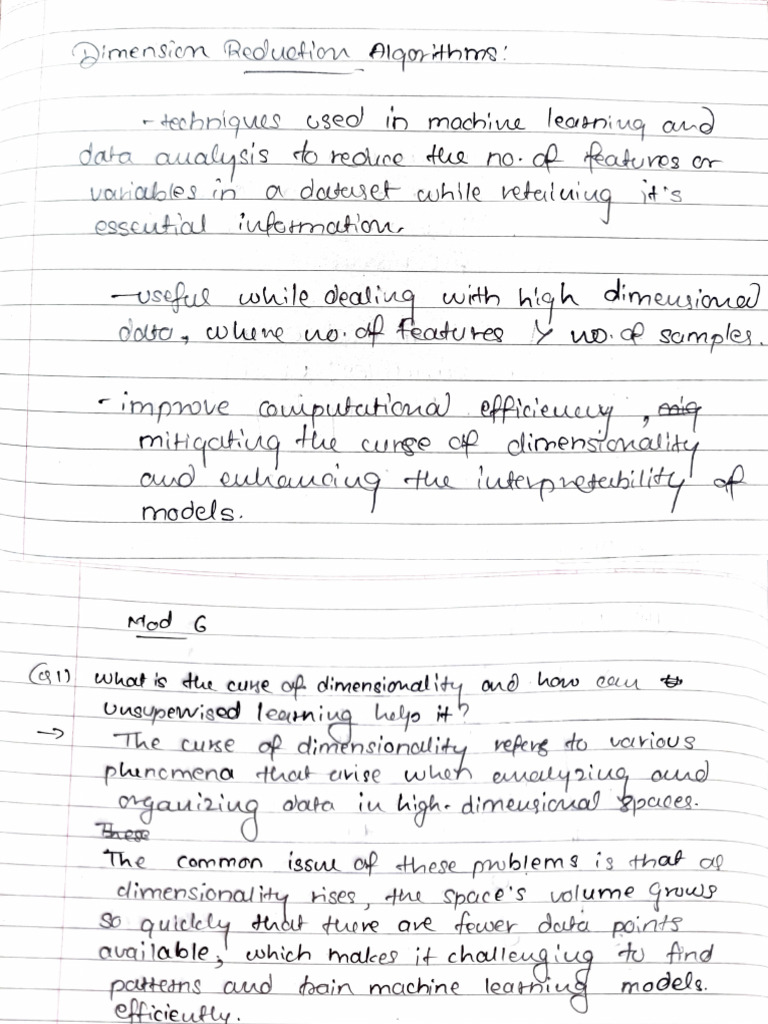 Dimension Reduction Algorithms:
- techniques used in machine learning and
data analysis to reduce the no. of features or
variables in a dataset while retaining it's
essential information.
- useful while dealing with high dimensioned
data, where no. of features > no. of samples.
- improve computational efficiency,
mitigating the curse of dimensionality
and enhancing the interpretability of
models.
Mod 6
Q1) what is the curse of dimensionality and how can
unsupervised learning help it?
→ The curse of dimensionality refers to various
phenomena that arise when analyzing and
organizing data in high-dimensional spaces.
These
The common issue of these problems is that as
dimensionality rises, the space's volume grows
so quickly that there are fewer data points
available, which makes it challenging to find
patterns and train machine learning models.
efficiently.